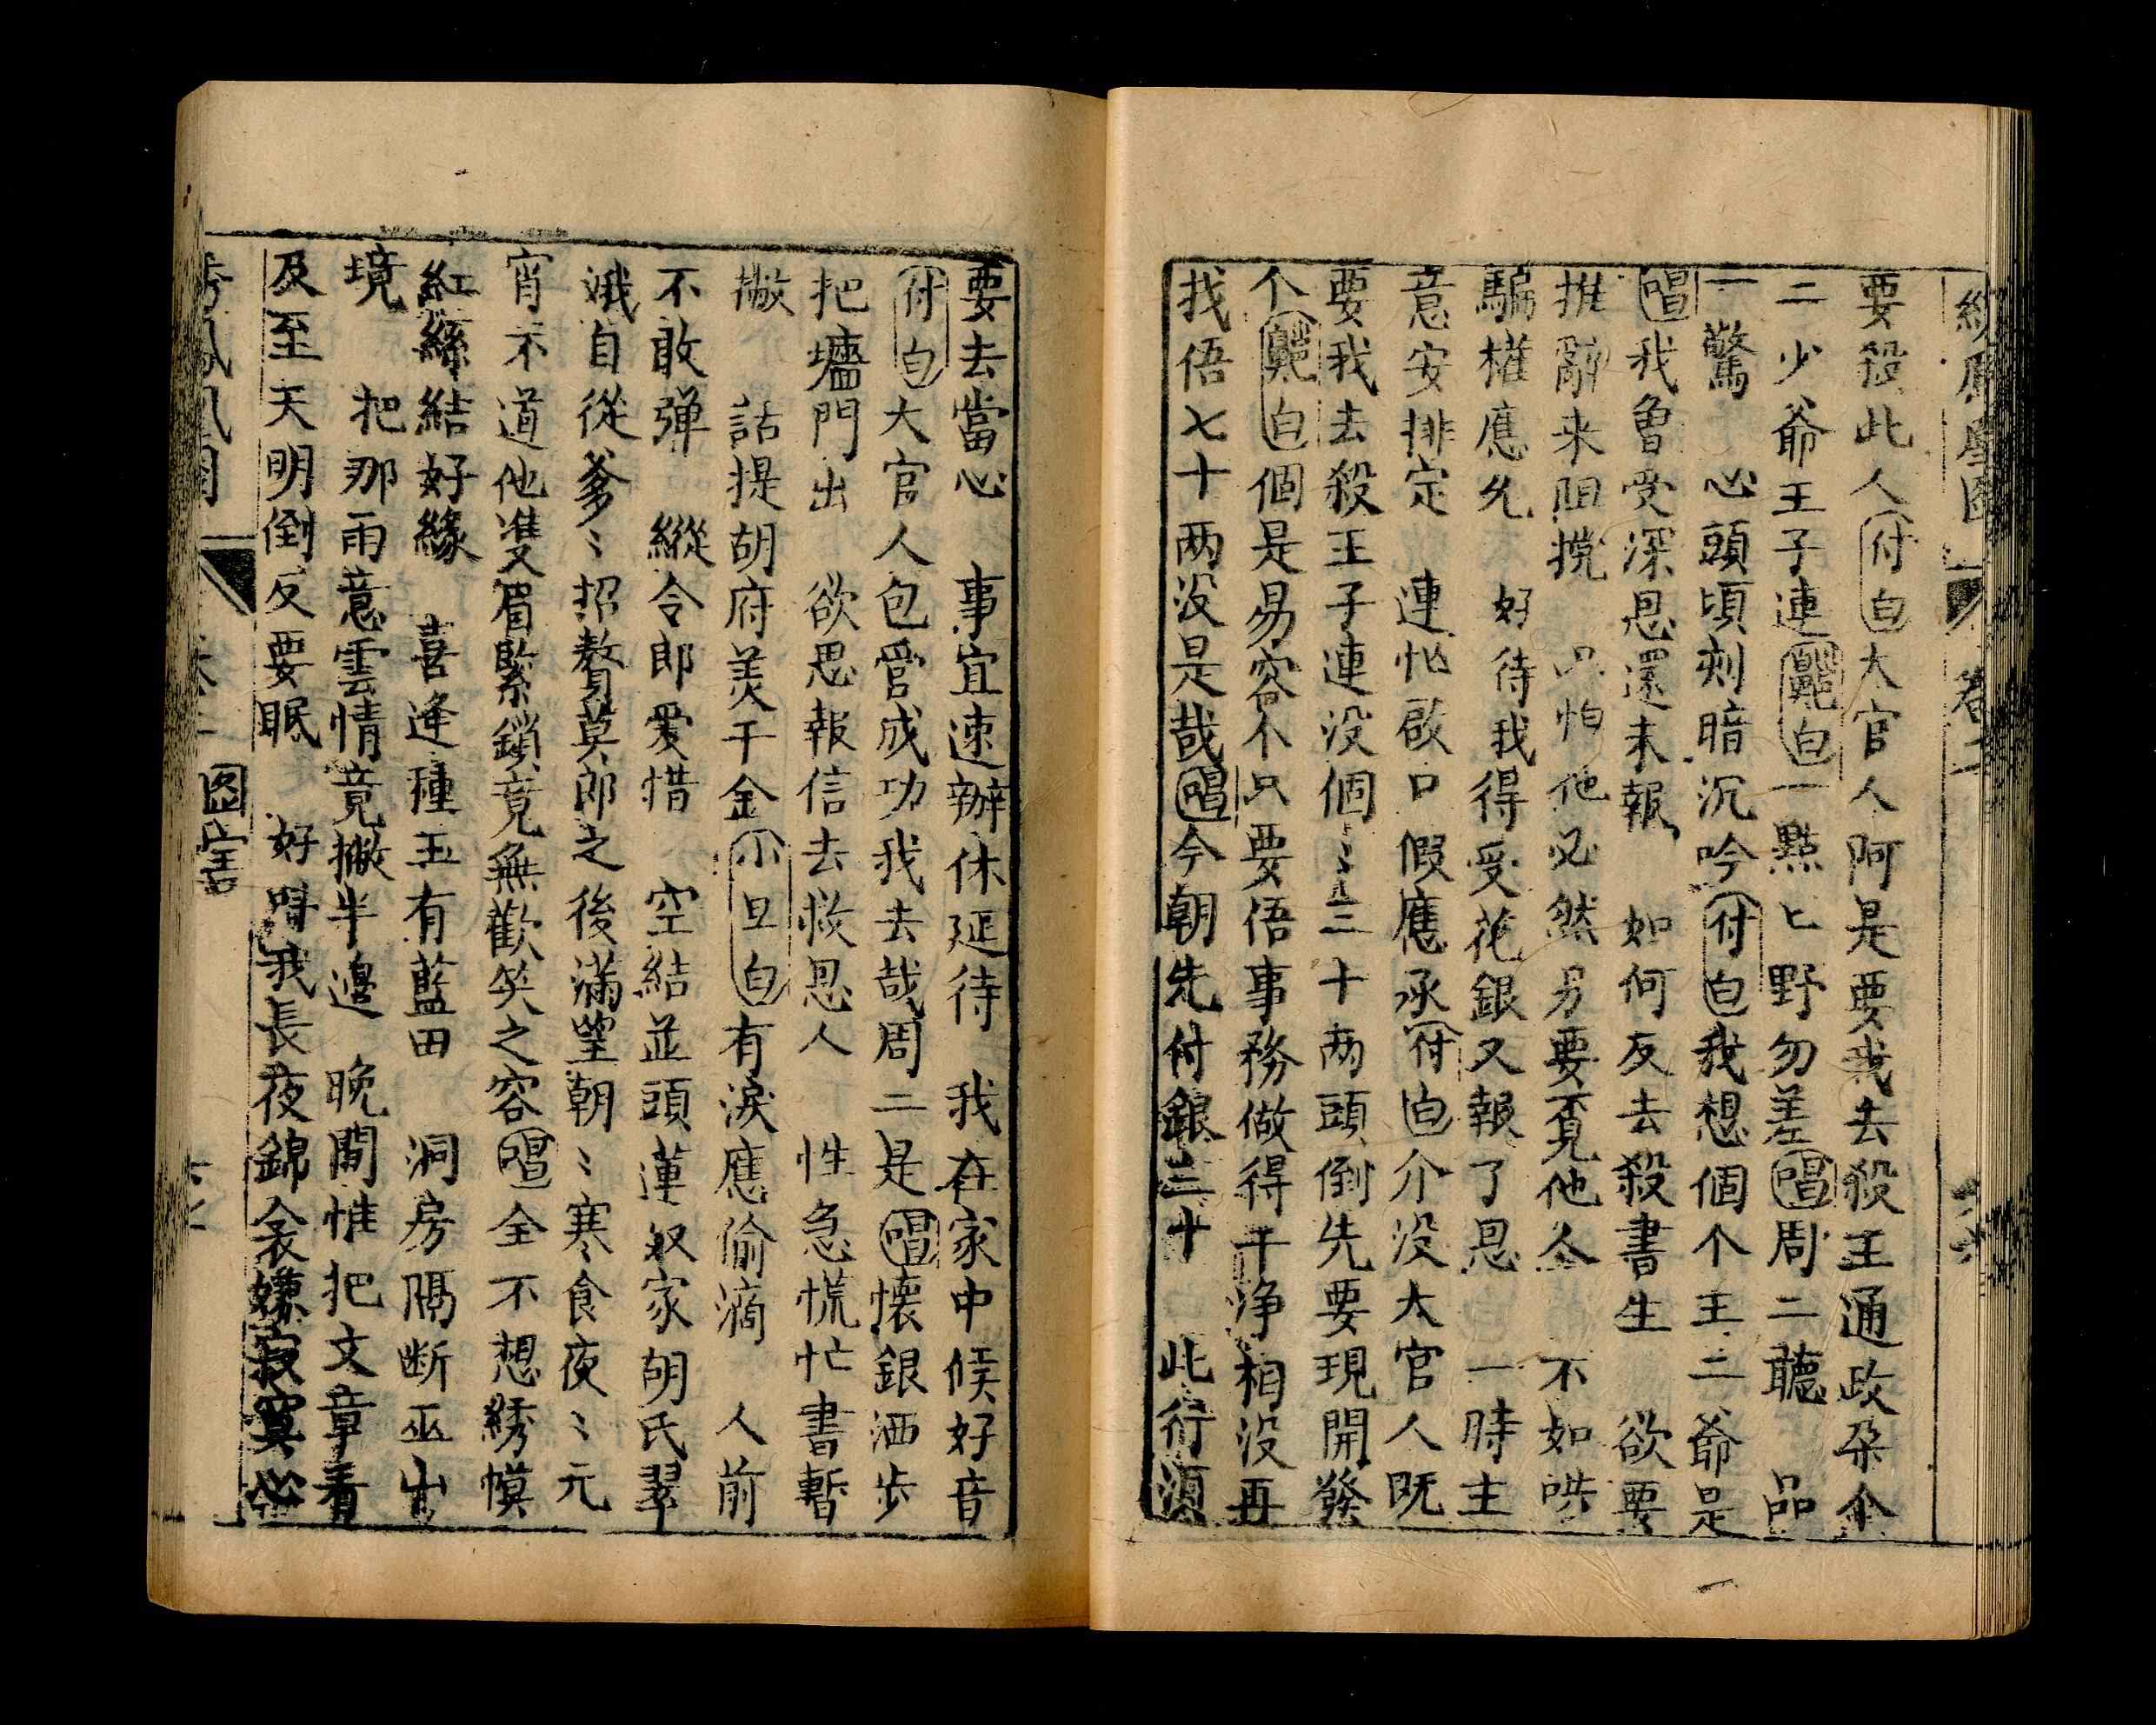 卷二
要殺此人付白大官人阿是要我去殺王通政朶个
二少爺王子連醜白一點匕野勿差唱周二聽　品
一驚　心頭頃刻暗沉吟付白我想個个王二爺是
唱我曾受深恩還未報　如何反去殺書生　欲要
推辭来阻撓　只怕他必然另要覔他人　不如哄
騙權應允　好待我得受花銀又報了恩　一時主
意安排定　連忙啟口假應承付白介没大官人既
要我去殺王子連没個〻三十两頭倒先要現開發
个醜白個是易容个只要俉事務做得干净相没再
找俉七十两没是哉唱今朝先付銀三十　此行須
要去當心　事宜速辦休延待　我在家中候好音
付白大官人包管成功我去哉周二是唱懷銀洒步
把墻門出　欲思報信去救恩人　性急慌忙書暫
撇　話提胡府美千金小旦白有淚應偷滴　人前
不敢弹　縱令郎愛惜　空結並頭蓮奴家胡氏翠
娥自從爹〻招贅莫郎之後滿望朝〻寒食夜〻元
宵不道他雙眉緊鎖竟無歡笑之容唱全不想綉幙
紅絲結好緣　喜逢種玉有藍田　洞房隔断巫山
境　把那雨意雲情竟撇半邊　晚間惟把文章看
及至天明倒反要眠　好時我長夜錦衾嫌寂寞